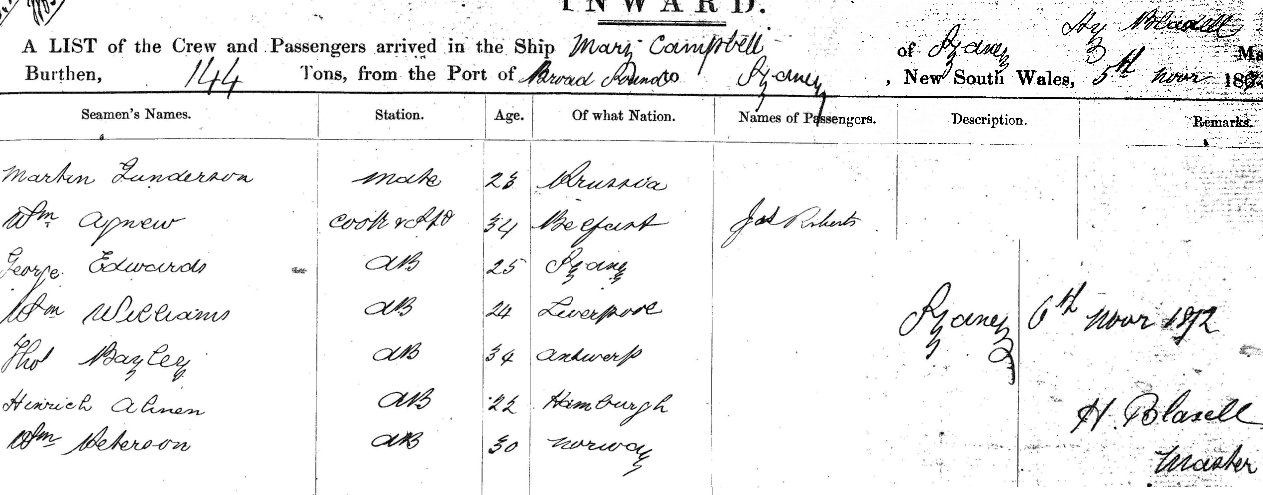 INWARD.
Hy Blaxell
A LIST of the Crew and Passengers arrived in the Ship Mary Campbell of Sydney Ma
Burthen, 144 Tons, from the Port of Broad Sound to Sydney, New South Wales, 5th Novr 1872
Seamen's Names. Station. Age. Of what Nation. Names of Passengers. Description. Remarks.
Martin Gunderson Mate 23 Prussia
Wm Agnew Cook & Std 34 Belfast Jas Roberts
George Edwards AB 25 Sydney
Wm Williams AB 24 Liverpool
Thos Bayley AB 34 Antwerp
Sydney 6th Novr 1872
Hinrich AB 22 Hamburgh
H. Blaxell
Wm Peterson AB 30 Norway
Master